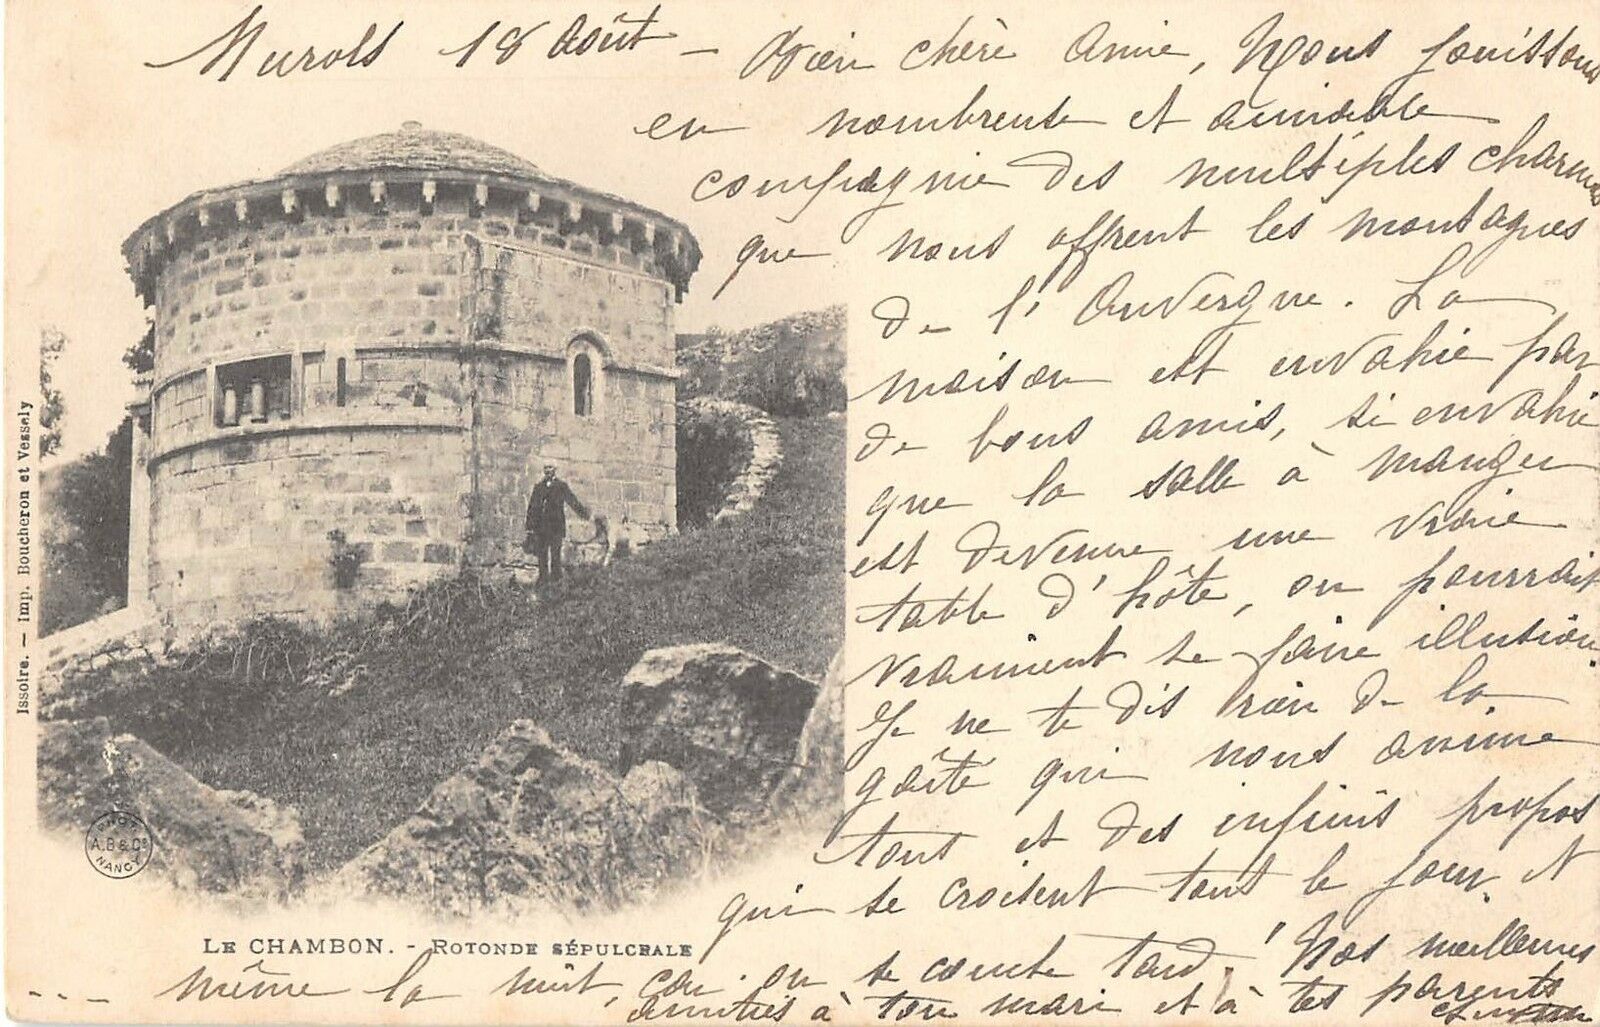 Murols 18 Août — Bien chère Amie, Nous jouissons
en nombreuse et aimable
compagnie des multiples charmes
que nous offrent les montagnes
de l'Auvergne. La
maison est envahie par
de bons amis, si envahie
que la salle à manger
est devenue une vraie
table d'hôte, on pourrait
vraiment se faire illusion.
Je ne te dis rien de la
gaîté qui nous anime
tous et des infinis propos
qui se croisent tout le jour et
--- même la nuit, car on se couche tard! Nos meilleures
amitiés à ton mari et à tes parents
LE CHAMBON. - ROTONDE SÉPULCRALE
Issoire. — Imp. Boucheron et Vessely
PHOT.
A.B & Cie
NANCY